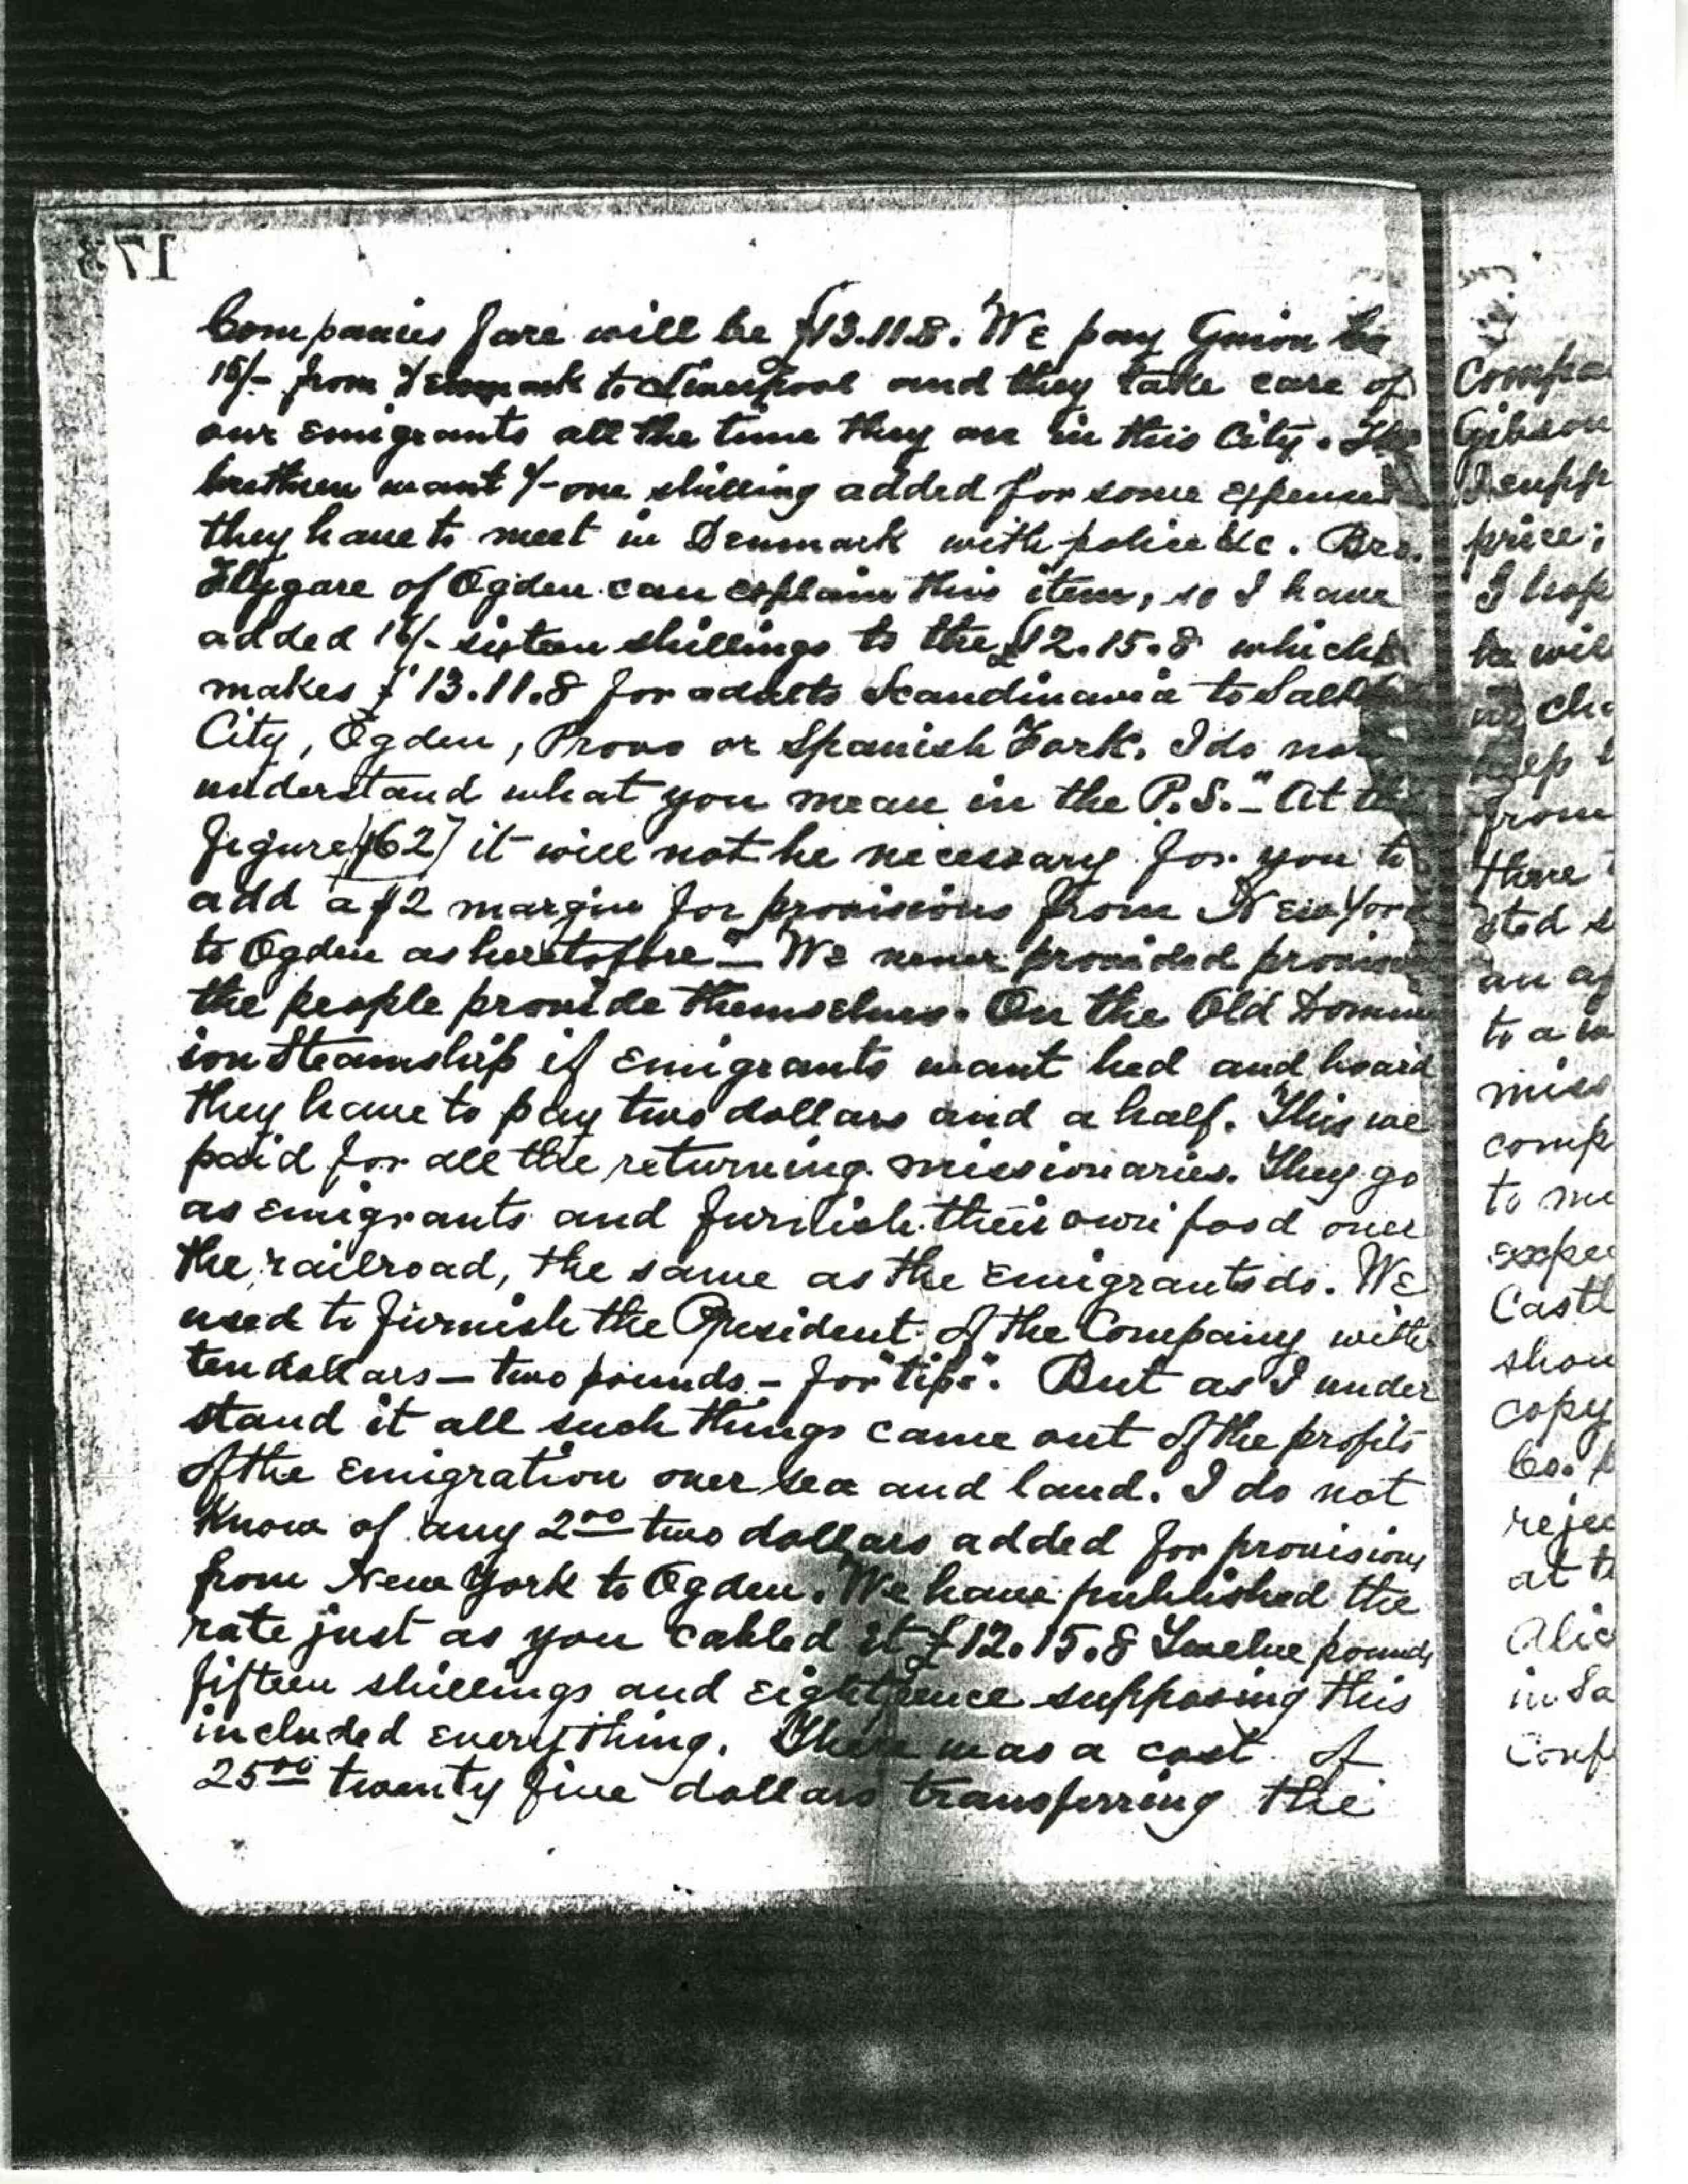 173
Companies fare will be £13.11.8. We pay Guion Co
15/- from Denmark to Liverpool and they take care of
our emigrants all the time they are in this City. The
brethren want 1/- one shilling added for some expenses
they have to meet in Denmark with police &c. Bro.
Flygare of Ogden can explain this item, so I have
added 16/- sixteen shillings to the £12.15.8 which
makes £13.11.8 for adults Scandinavia to Salt
City, Ogden, Provo or Spanish Fork. I do not
understand what you mean in the P.S. "At this
figure [$62] it will not be necessary for you to
add a $2 margin for provisions from New York
to Ogden as heretofore" – We never provided provis
the people provide themselves. On the Old Domin
ion Steamship if emigrants want bed and board
they have to pay two dollars and a half. This we
paid for all the returning missionaries. They go
as emigrants and furnish their own food over
the railroad, the same as the emigrants do. We
used to furnish the President of the Company with
ten dollars – two pounds – for "tips". But as I under
stand it all such things came out of the profits
of the emigration over sea and land. I do not
know of any 2.00 two dollars added for provisions
from New York to Ogden. We have published the
rate just as you cabled it £12.15.8 Twelve pounds
fifteen shillings and eightpence supposing this
included everything. There was a cost of
25.00 twenty five dollars transferring the
Compa
Gibson
I supp
price;
I hop
be wil
no che
keep
from
there
sted s
an ag
to a
miss
comp
to me
expec
Castl
shou
copy
Co.
rejec
at t
Alic
in Sa
Conf